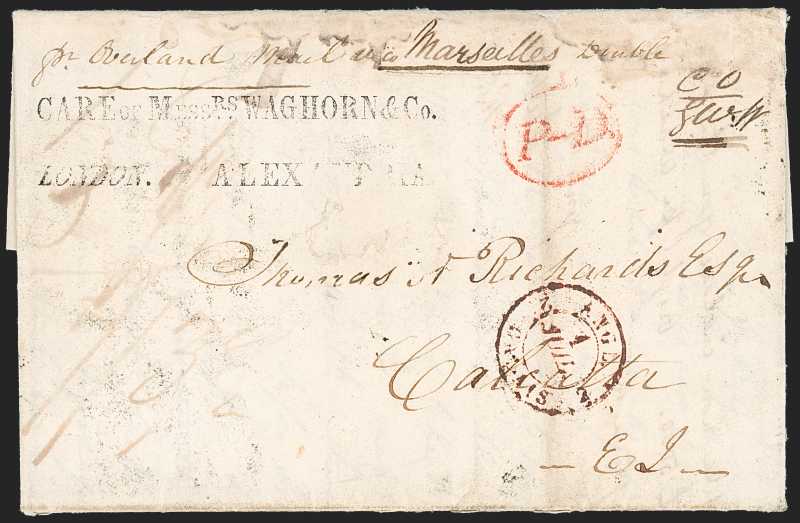 pr Overland Mail via Marseilles Double
CARE OF MESSRS WAGHORN & Co.
LONDON. ALEX
P-D
C O
Thomas N Richards Esqr
ANGL.
4
CALAIS
Calcutta
— E I —